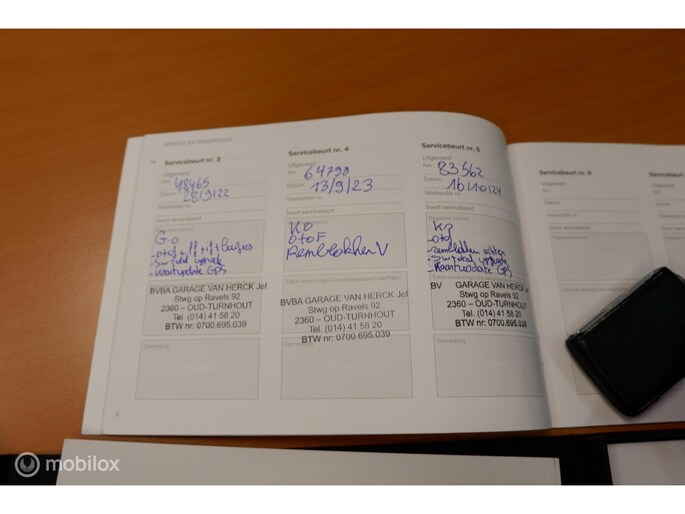 SERVICE EN ONDERHOUD
Servicebeurt nr. 3
Uitgevoerd
Km 48465
Datum 28/9/22
Werkorder nr.
Soort servicebeurt
GO
- Kaartupdate GPS
BVBA GARAGE VAN HERCK Jef
Stwg op Ravels 92
2360 – OUD-TURNHOUT
Tel. (014) 41 58 20
BTW nr: 0700.695.039
Opmerking
Servicebeurt nr. 4
Uitgevoerd
Km 64790
Datum 13/9/23
Werkorder nr.
Soort servicebeurt
KO
OtOF
Remblokken V
BVBA GARAGE VAN HERCK Jef
Stwg op Ravels 92
2360 – OUD-TURNHOUT
Tel. (014) 41 58 20
BTW nr: 0700.695.039
Opmerking
Servicebeurt nr. 5
Uitgevoerd
Km 83562
Datum 16/10/24
Werkorder nr.
Soort servicebeurt
- Kaartupdate GPS
BV GARAGE VAN HERCK Jef
Stwg op Ravels 92
2360 – OUD-TURNHOUT
Tel. (014) 41 58 20
BTW nr: 0700.695.039
Opmerking
Servicebeurt nr. 6
Uitgevoerd
Km
Datum
Werkorder nr.
Soort servicebeurt
mobilox